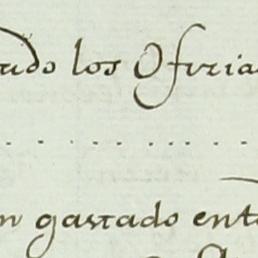 udo los Ofiria
n gastado ent